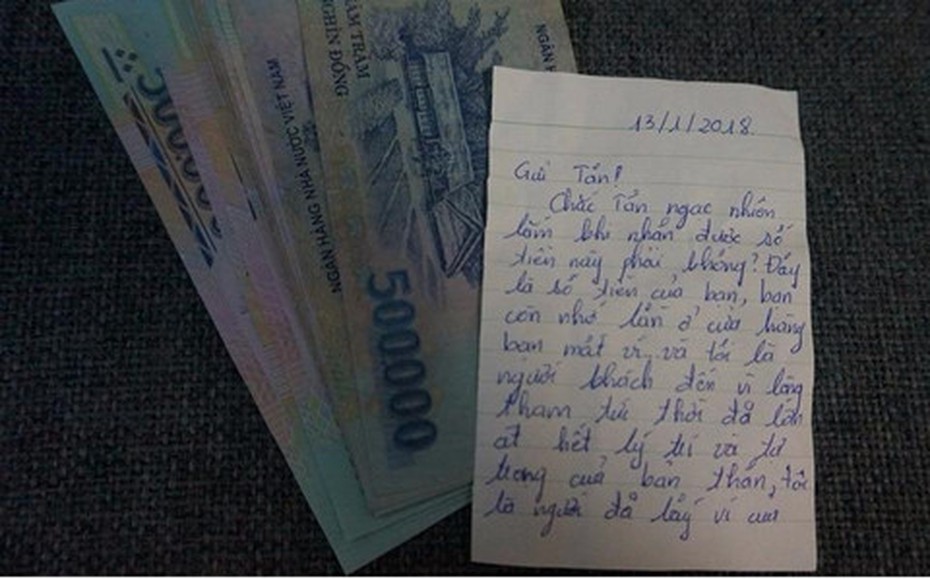 500.000
NGÂN HÀNG NHÀ NƯỚC VIỆT NAM
NĂM TRĂM
NGHÌN ĐỒNG
500000
NGÂN H
13/1/2018.
Gửi Tấn!
Chắc Tấn ngạc nhiên
lắm khi nhận được số
tiền này phải không? Đây
là số tiền của bạn, bạn
còn nhớ lần ở cửa hàng
bạn mất ví, và tôi là
người khách đến vì lòng
tham tức thời đã lấn
át hết lý trí và tự
trọng của bản thân, tôi
là người đã lấy ví của